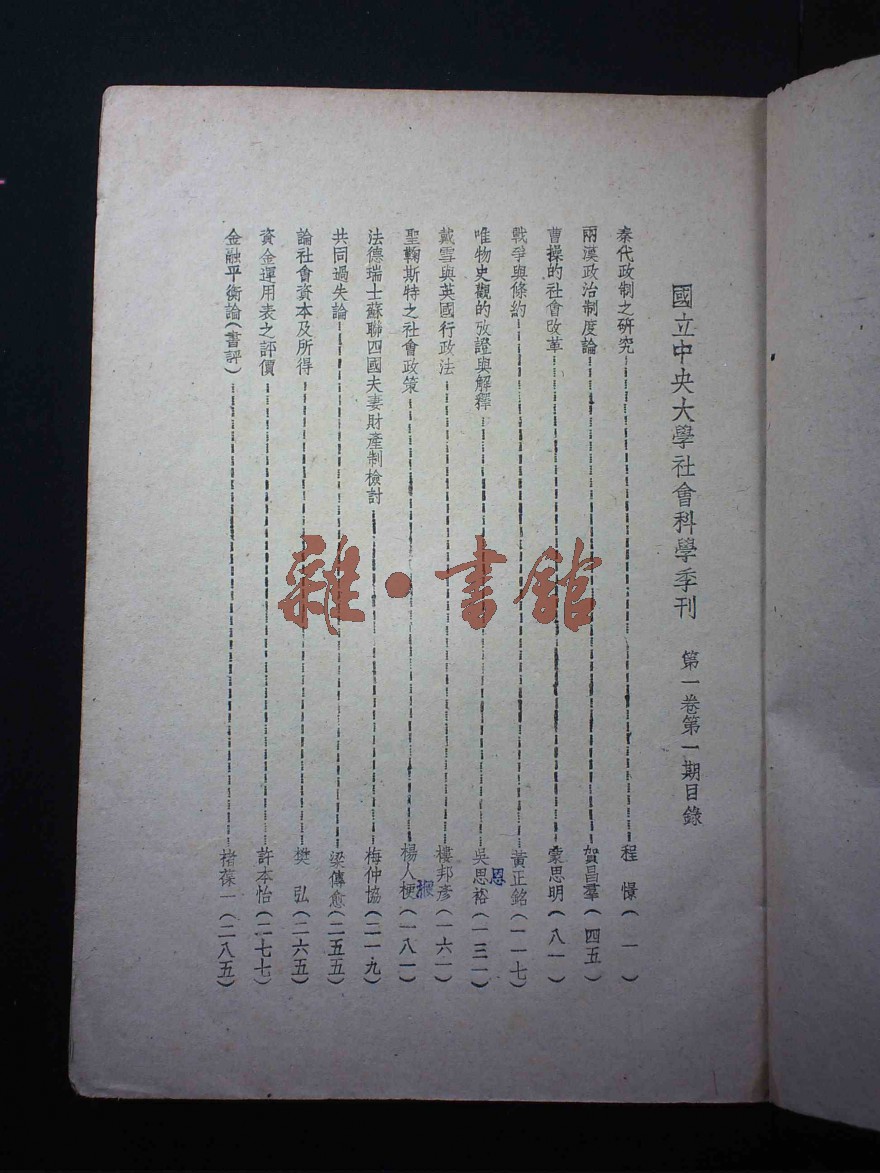 國立中央大學社會科學季刊 第一卷第一期目錄
秦代政制之硏究 程憬（一）
兩漢政治制度論 賀昌羣（四五）
曹操的社會改革 蒙思明（八一）
戰爭與條約 黃正銘（一一七）
唯物史觀的攷證與解釋 吳思裕（一三一）
恩
戴雪與英國行政法 樓邦彥（一六一）
聖鞠斯特之社會政策 楊人梗（一八一）
楩
法德瑞士蘇聯四國夫妻財產制檢討 梅仲協（二一九）
共同過失論 梁傳愈（二五五）
論社會資本及所得 樊弘（二六五）
資金運用表之評價 許本怡（二七七）
金融平衡論（書評） 褚葆一（二八五）
雜·書館